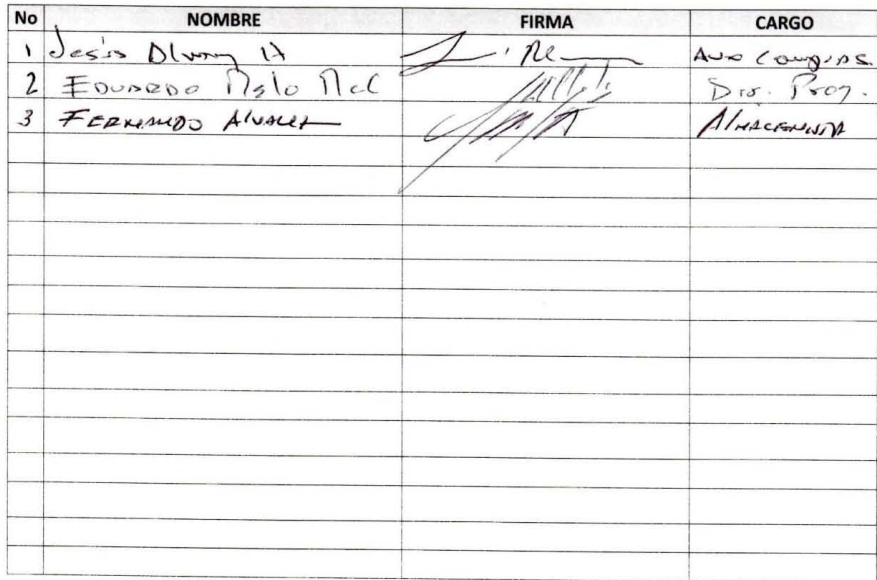 No NOMBRE FIRMA CARGO
1 Jesús H Aux Compras.
2 EDUARDO Melo Dir. Proy.
3 FERNANDO Alvarez Almacenista